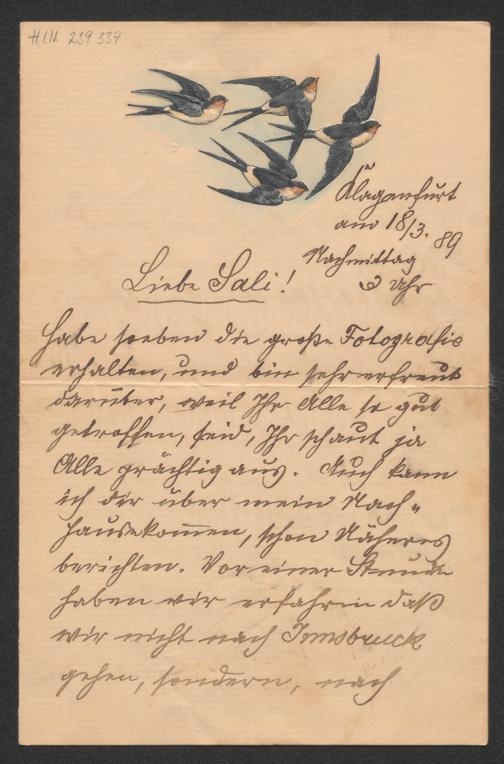 H.I.N. 239.337
Klagenfurt
am 18/3. 89
Nachmittag
3 Uhr
Liebe Sali!
Habe soeben die große Fotografie
erhalten, und bin sehr erfreut
darüber, weil Ihr Alle so gut
getroffen, seid, Ihr schaut ja
Alle prächtig aus. Auch kann
ich dir über mein Nach-
hausekom̅en, schon Näheres
berichten. Vor einer Stunde
haben wir erfahren daß
wir nicht nach Innsbruck
gehen, sondern, nach